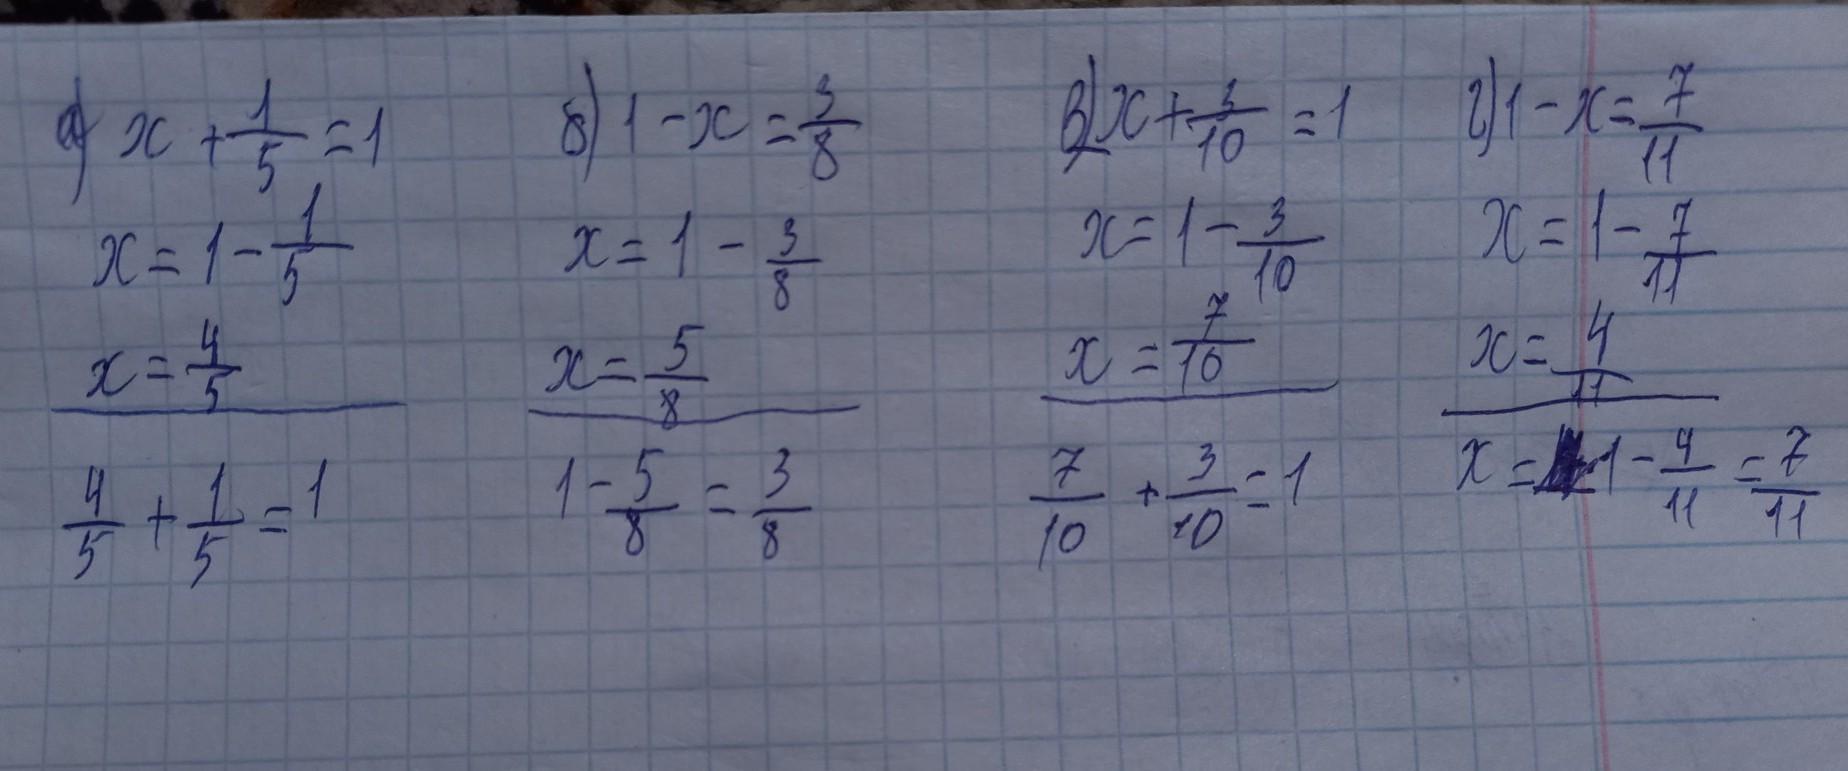 а) x + 1/5 = 1
x = 1 - 1/5
x = 4/5
4/5 + 1/5 = 1
б) 1 - x = 3/8
x = 1 - 3/8
x = 5/8
1 - 5/8 = 3/8
в) x + 3/10 = 1
x = 1 - 3/10
x = 7/10
7/10 + 3/10 = 1
г) 1 - x = 7/11
x = 1 - 7/11
x = 4/11
x = 1 - 4/11 = 7/11